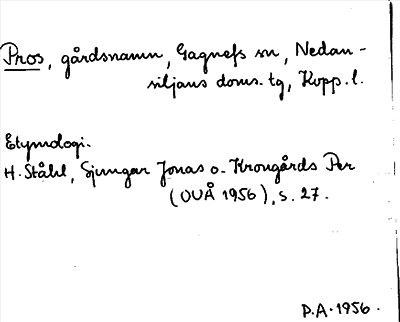 Pros, gårdsnamn, Gagnefs sn, Nedan-
siljans doms. tg, Kopp. l.
Etymologi.
H. Ståhl, Sjungar Jonas o. Krongårds Per
(OUÅ 1956), s. 27.
D.A. 1956.